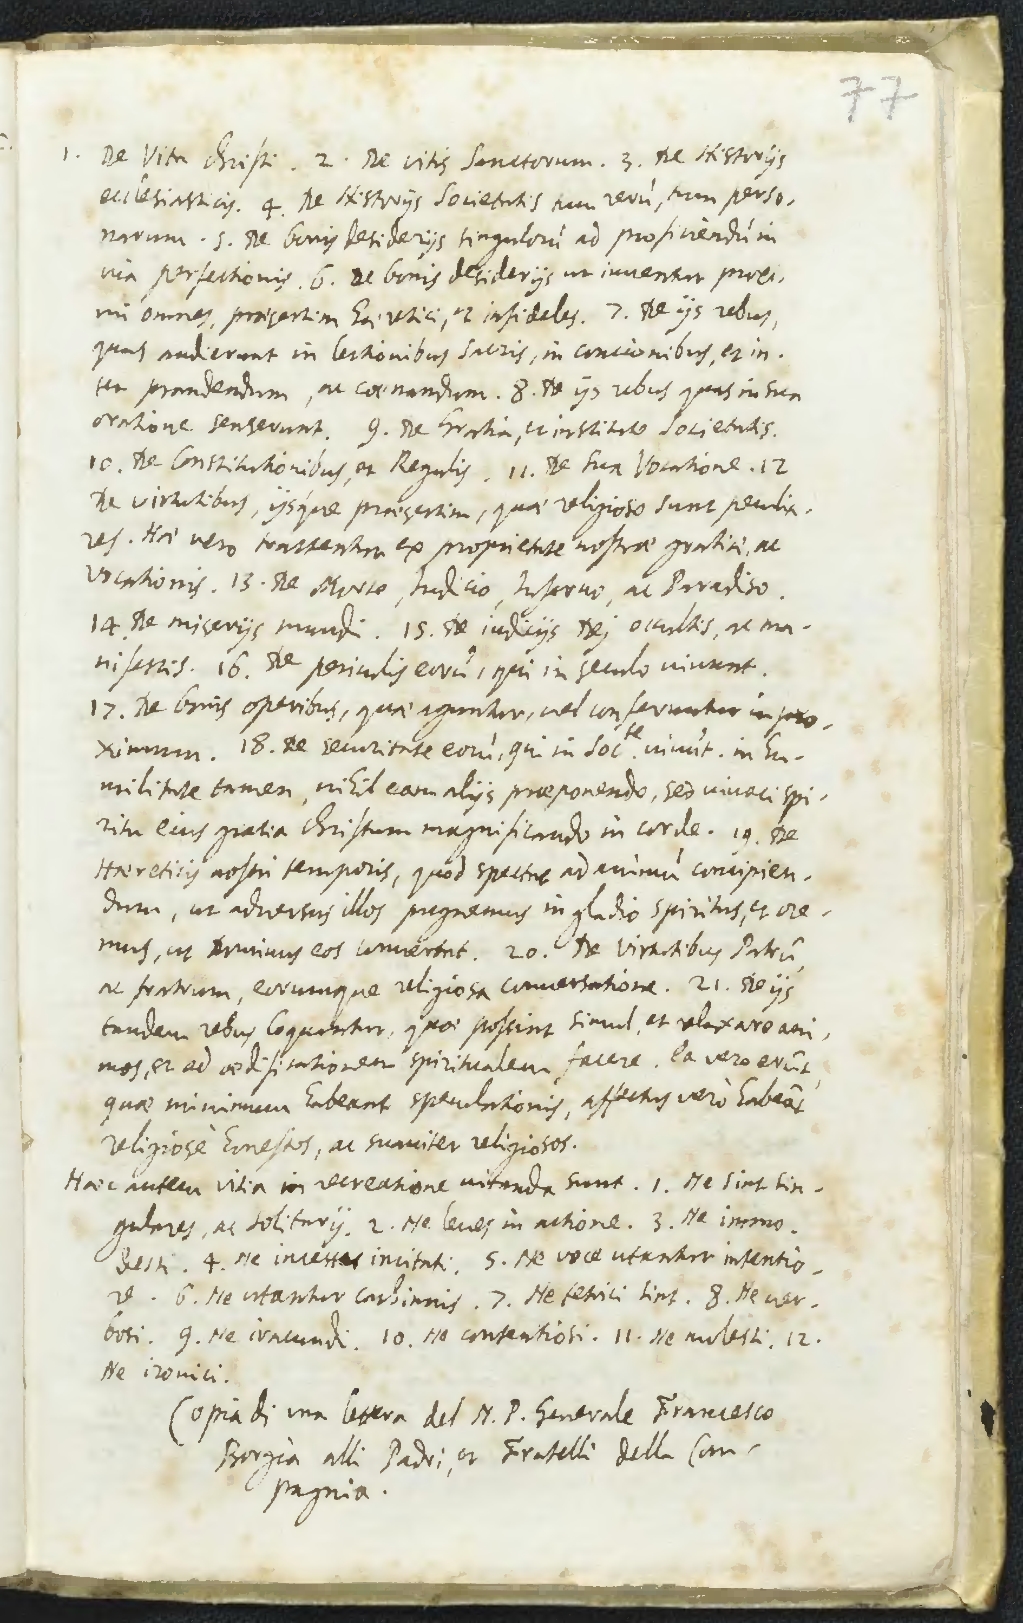 77
1. De Vita Christi. 2. De vitis Sanctorum. 3. De Historijs
ecclesiasticis. 4. De Historijs Societatis tum rerũ, tum perso-
narum. 5. De bonis desiderijs singulorũ ad proficiendũ in
via perfectionis. 6. De bonis desiderijs ut iuventur proxi-
mi omnes, præsertim hæretici, et infideles. 7. De ijs rebus,
quas audierunt in lectionibus sacris, in concionibus, et in-
ter prandendum, ac cœnandum. 8. De ijs rebus quas in sua
oratione senserunt. 9. De Gratia, et instituto Societatis.
10. De Constitutionibus, et Regulis. 11. De sua Vocatione. 12
De virtutibus, ijsque præsertim, quæ religioso sunt peculia-
res. Hæ vero tractentur ex proprietate nostræ gratiæ, ac
Vocationis. 13. De Morte, Iudicio, Inferno, ac Paradiso.
14. De miserijs mundi. 15. De iudicijs Dei occultis, ac ma-
nifestis. 16. De periculis eorũ, qui in seculo vivunt.
17. De bonis operibus, quæ aguntur, vel conferuntur in pro-
ximum. 18. De securitate eorũ, qui in Socte. vivũt. in hu-
militate tamen, nihil eam alijs præponendo, sed vivaci spi-
ritu eius gratia Christum magnificando in corde. 19. De
Hæreticis nostri temporis, quod spectat ad animũ concipien-
dum, ut adversus illos pugnemus in gladio spiritus, et ore-
mus, ut Dominus eos convertat. 20. De Virtutibus Patrũ,
ac fratrum, eorumque religiosa conversatione. 21. De ijs
tandem rebus loquantur, quæ possint simul, et relaxare ani-
mos, et ad ædificationem spiritualem facere. Ea vero erũt,
quæ minimum habeant speculationis, affectus vero habeãt
religiose honestos, ac suaviter religiosos.
Hæc autem vitia in recreatione vitanda sunt. 1. Ne sint sin-
gulares, ac solitarij. 2. Ne leves in actione. 3. Ne immo-
desti. 4. Ne incessu incitati. 5. Ne voce utantur intentio-
re. 6. Ne utantur cachinnis. 7. Ne tetrici sint. 8. Ne ver-
bosi. 9. Ne iracundi. 10. Ne contentiosi. 11. Ne molesti. 12.
Ne ironici.
Copia di una lettera del N. P. Generale Francesco
Borgia alli Padri, et Fratelli della Com-
pagnia.